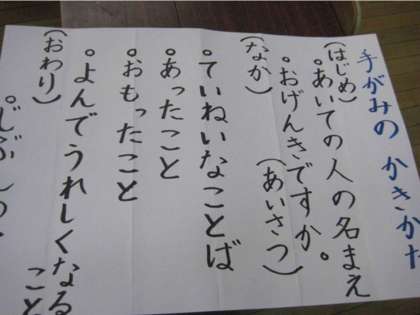 手がみの かきかた
(はじめ)
。あいての人の名まえ
。おげんきですか。(あいさつ)
(なか)
。ていねいなことば
。あったこと
。おもったこと
。よんでうれしくなる
こと
(おわり)
。じぶんの